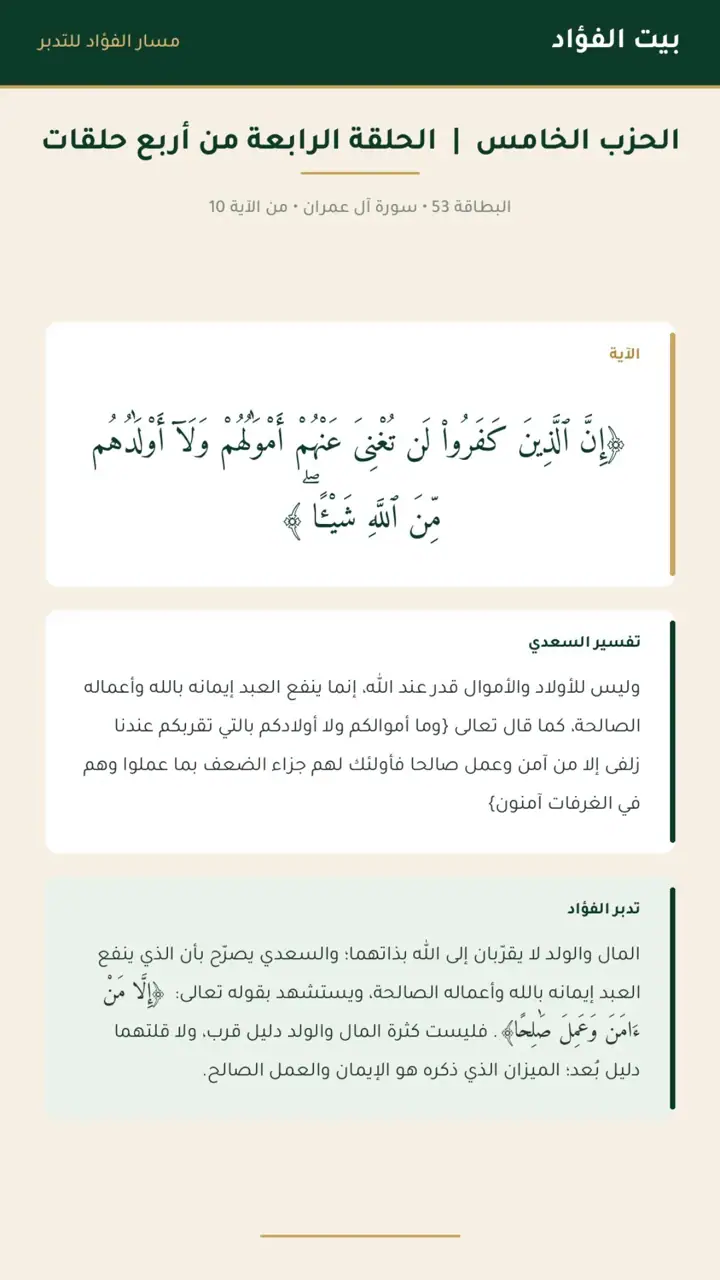 بيت الفؤاد
مسار الفؤاد للتدبر
الحزب الخامس | الحلقة الرابعة من أربع حلقات
البطاقة 53 • سورة آل عمران • من الآية 10
الآية
﴿إِنَّ ٱلَّذِينَ كَفَرُوا۟ لَن تُغْنِىَ عَنْهُمْ أَمْوَٰلُهُمْ وَلَآ أَوْلَـٰدُهُم
مِّنَ ٱللَّهِ شَيْـًٔا ۖ ﴾
تفسير السعدي
وليس للأولاد والأموال قدر عند الله، إنما ينفع العبد إيمانه بالله وأعماله
الصالحة، كما قال تعالى {وما أموالكم ولا أولادكم بالتي تقربكم عندنا
زلفى إلا من آمن وعمل صالحا فأولئك لهم جزاء الضعف بما عملوا وهم
في الغرفات آمنون}
تدبر الفؤاد
المال والولد لا يقرّبان إلى الله بذاتهما؛ والسعدي يصرّح بأن الذي ينفع
العبد إيمانه بالله وأعماله الصالحة، ويستشهد بقوله تعالى: ﴿إِلَّا مَنْ
ءَامَنَ وَعَمِلَ صَـٰلِحًا﴾. فليست كثرة المال والولد دليل قرب، ولا قلتهما
دليل بُعد؛ الميزان الذي ذكره هو الإيمان والعمل الصالح.